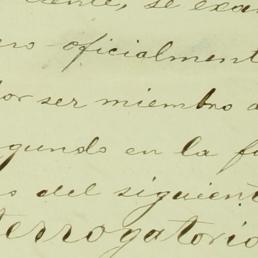 ciente, se exa
ero oficialment
por ser miembro d
gundo en la f
s del siguient
terrogatorio